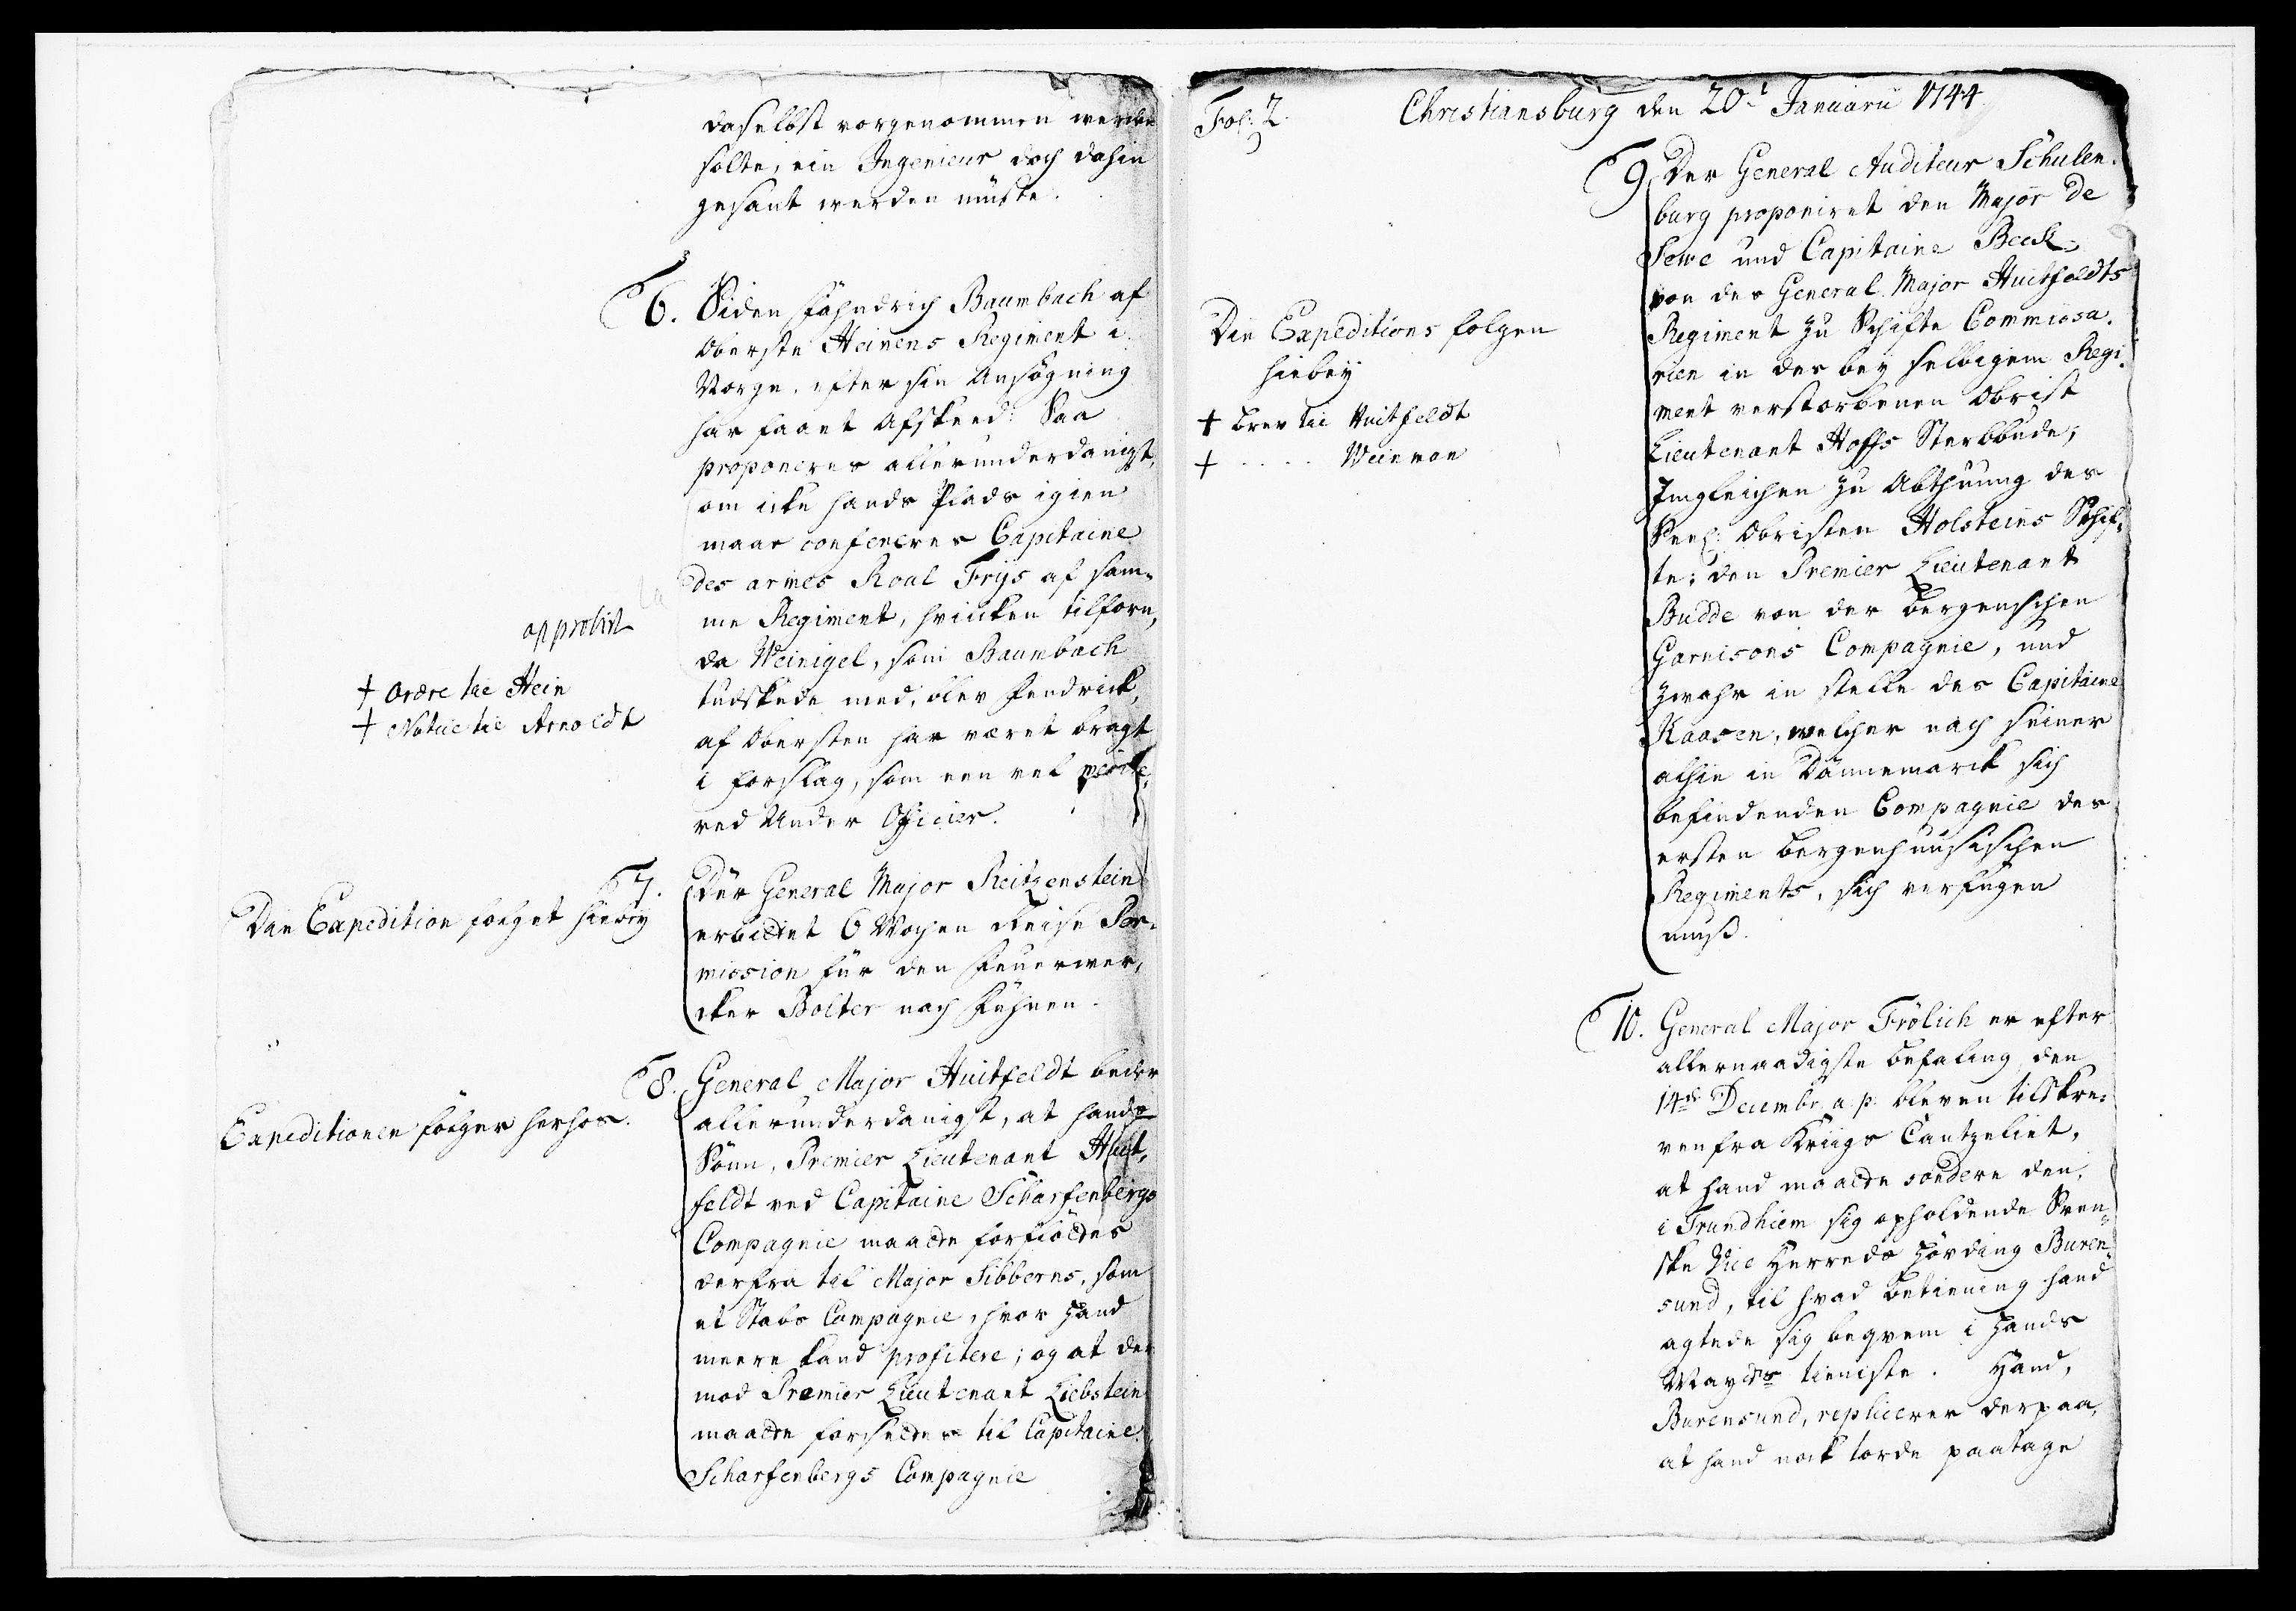 daselbst vorgenommen werden
solte, ein Ingenieur doch dahin
gesant werden müste.
6. Siden Fähndrich Baumbach af
Oberste Heinens Regiment i
Norge, efter sin Ansögning
har faaet Afskeed: Saa
proponeres allerunderdanigst,
om icke hands Plads igien
maae confereres Capitaine
des armes Roal Frijs af sam-
me Regiment, hvilken tilforn,
da Weinigel, som Baumbach
tuskede med, blev Fendrick,
af Obersten har været bragt
i forslag, som een vel meri-
red Under Officier.
approbirt
† Ordre til Hein
† Notice til Arnoldt
7. Der General Major Reitzenstein
erbittet 6 Wochen Reise Per-
mission für den Feuerwer-
cker Bolter nach Fühnen.
Die Expedition folget hiebey
8. General Major Huitfeldt beder
allerunderdanigst, at hands
Sönn, Premier Lieutenant Huit-
feldt ved Capitaine Scharfenbergs
Compagnie maatte forflöttes
derfra til Major Sibberns, som
et Stabs Compagnie, hvor hand
meere kand profitere; og at der
mod Premier Lieutenant Liebstein
maatte forsettes til Capitaine
Scharfenbergs Compagnie
Expeditionen fölger herhos.
Fol: 2.
Christiansburg den 20t Januarii 1744.
9. Der General Auditeur Schulen-
burg proponiret den Major de
Seue und Capitaine Beck,
von des General Major Huitfeldts
Regiment zu Schifte Commissa-
rien in der bey selbigem Regi-
ment verstorbenen Obrist
Lieutenant Hoffs Sterbbude;
Imgleichen zu Abthuung des
Seel: Obristen Holsteins Schif-
te; den Premier Lieutenant
Budde von der Bergenschen
Garnisons Compagnie, und
zwahr in stelle des Capitaine
Kaasen, welcher nach seiner
alhie in Dännemarck sich
befindenden Compagnie des
ersten Bergenhuusischen
Regiments, sich verfügen
muß.
Die Expeditions folgen
hiebey
† Brev til Huitfeldt
† . . . . .
10. General Major Frölich er efter
allernaadigste Befaling den
14de Decembr a: p: bleven tilskre-
ven fra Kriigs Cantzeliet,
at hand maatte sondere den,
i Trundhiem sig opholdende Sven-
ske Vice Herreds Hövding Buren-
sund, til hvad Betiening hand
agtede sig beqvem i Hands
Mayts tieniste. Hand,
Burensund, replicerer derpaa,
at hand nock torde paatage